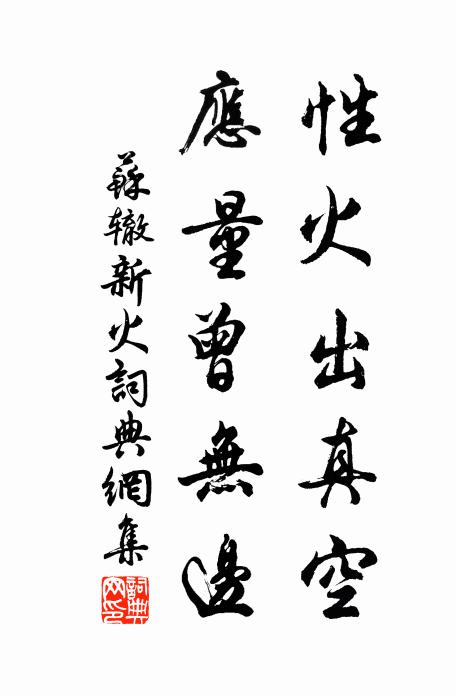 性火出真空
應量曾無邊
蘇轍新火詞典網集
詞典网印